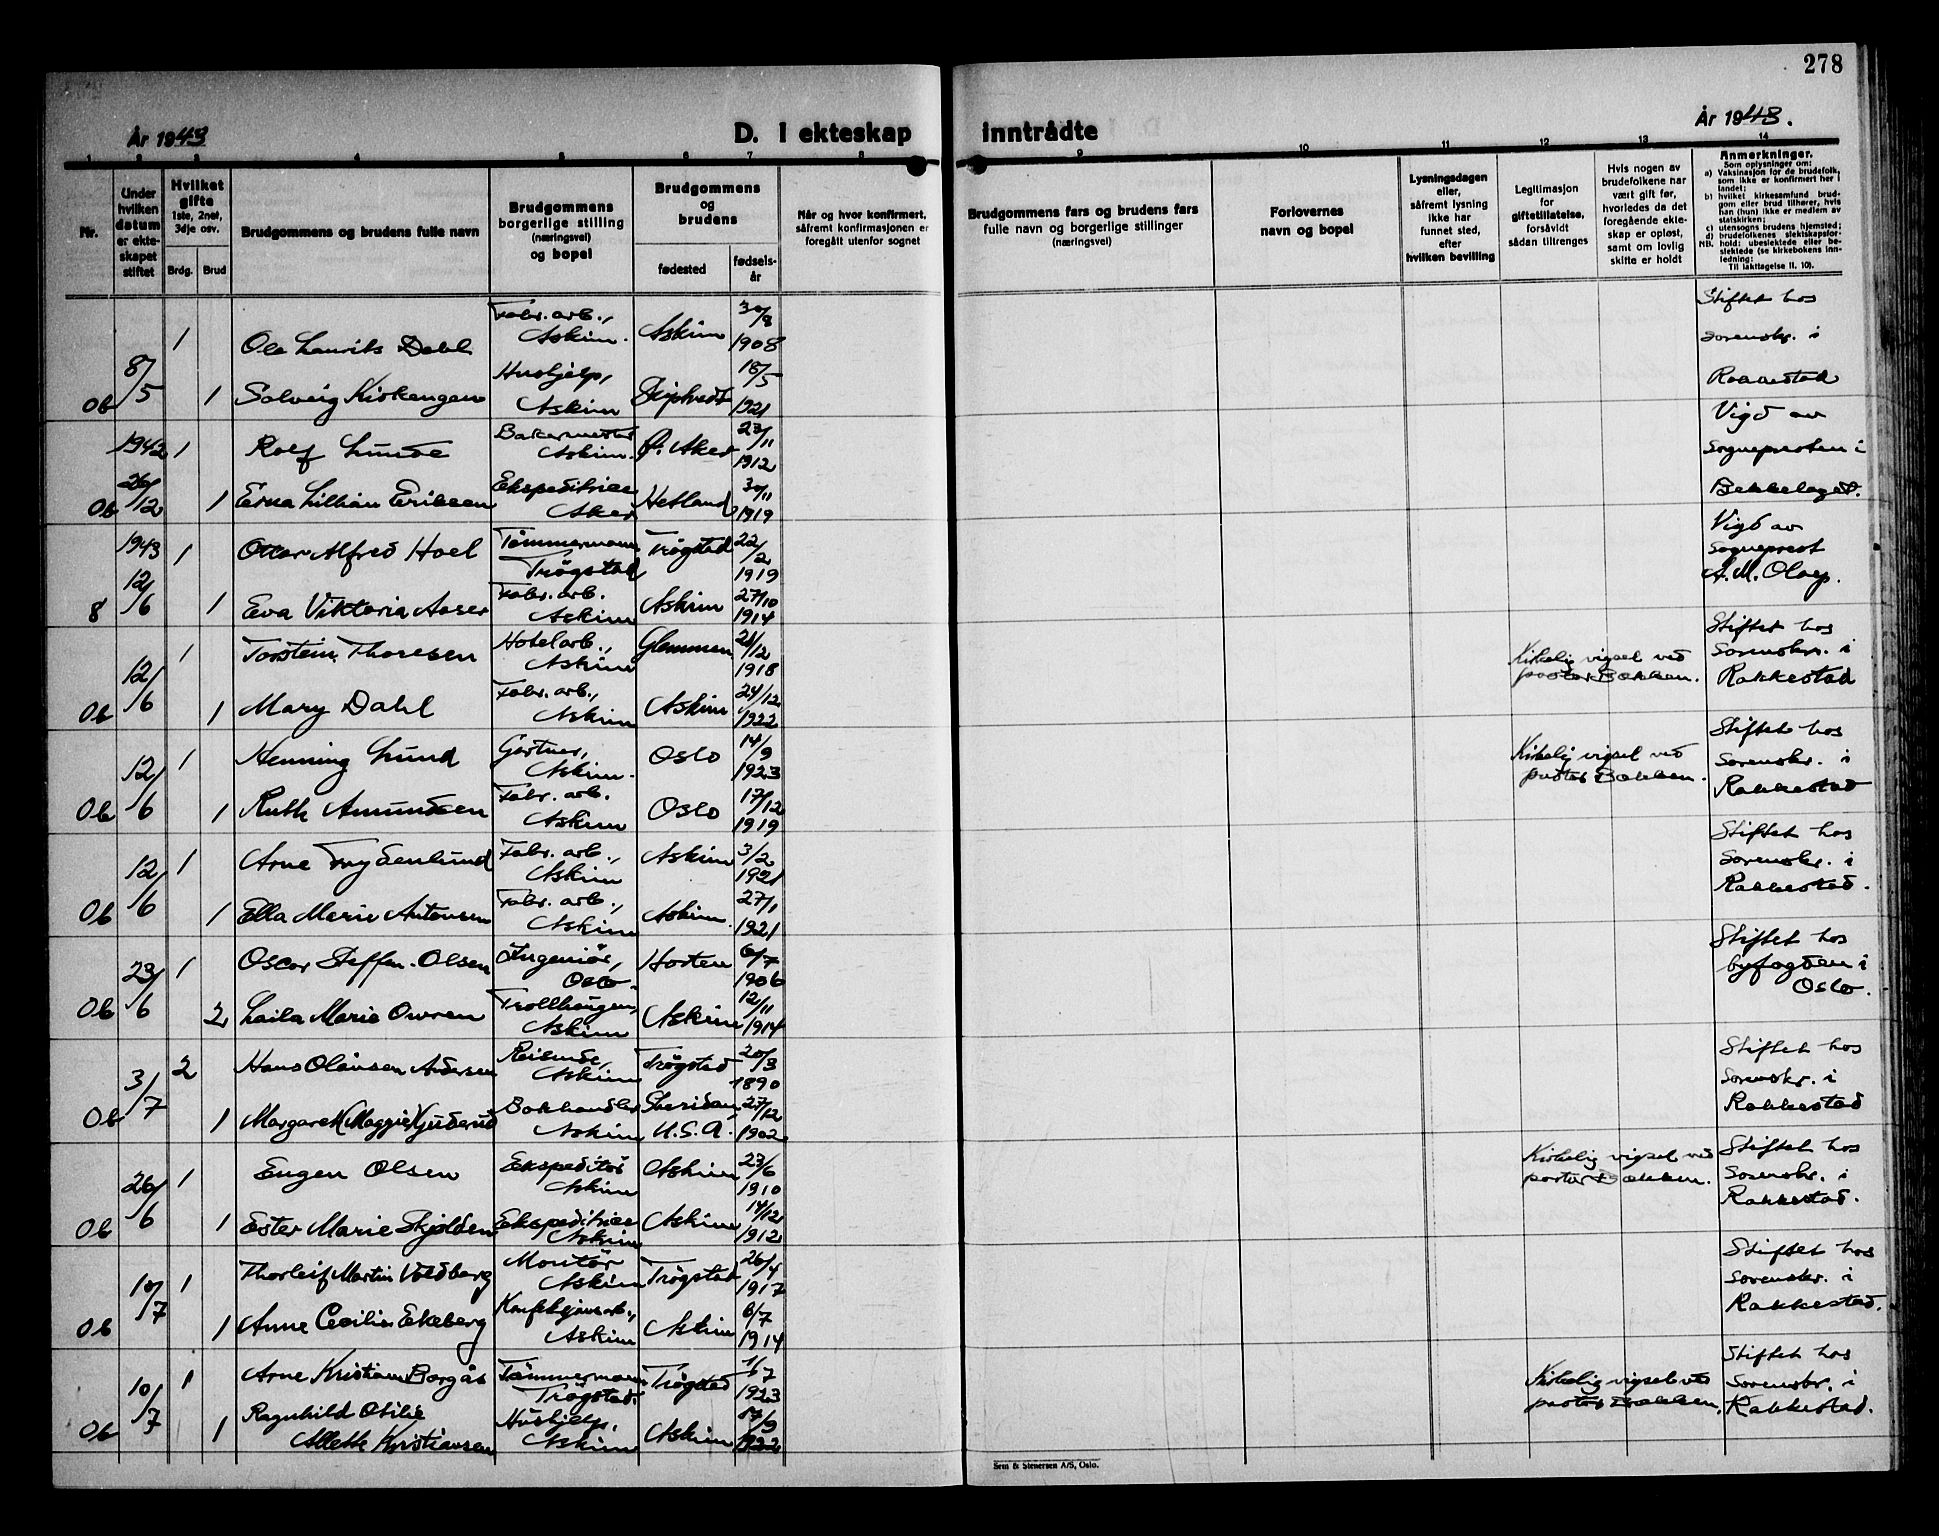 278
År 1943
D. I ekteskap inntrådte
År 1943.
1 2 3 4 5 6 7 8 9 10 11 12 13 14
Nr.
Under hvilken datum er ekteskapet stiftet
Hvilket gifte
1ste, 2net, 3dje osv.
Brdg. Brud
Brudgommens og brudens fulle navn
Brudgommens borgerlige stilling (næringsvei) og bopel
Brudgommens og brudens
fødested
fødselsår
Når og hvor konfirmert, såfremt konfirmasjonen er foregått utenfor sognet
Brudgommens fars og brudens fars fulle navn og borgerlige stillinger (næringsvei)
Forlovernes navn og bopel
Lysningsdagen eller, såfremt lysning ikke har funnet sted, efter hvilken bevilling
Legitimasjon for giftetillatelse, forsåvidt sådan tiltrenges
Hvis nogen av brudefolkene har vært gift før, hvorledes da det foregående ekteskap er opløst, samt om lovlig skifte er holdt
Anmerkninger.
Som oplysninger om:
a) Vaksinasjon for de brudefolk, som ikke er konfirmert her i landet;
b) hvilket kirkesamfund brudgom eller brud tilhører, hvis han (hun) ikke er medlem av statskirken;
c) utensogns brudens hjemsted;
d) brudefolkenes slektskapsforhold: ubeslektede eller beslektede (se kirkebokens innledning;
NB. Til iakttagelse II. 10).
Ob 8/5 1 Ole Laurits Dahl Fabr. arb., Askim. Askim 30/8 1908 Stiftet hos sorenskr. i Rakkestad
1 Solveig Kirkengen Hushjelp, Askim Skiptvedt 18/5 1921
Ob 1942 26/12 1 Rolf Lunde Bakermester Askim. Ø. Aker 23/11 1912 Vigd av sognepresten i Bekkelaget.
1 Erna Lillian Eriksen Ekspeditrise Aker Hetland 30/11 1919
8 1943 12/6 1 Ottar Alfred Hoel Tømmermann Trøgstad Trøgstad 22/2 1919 Vigd av sogneprest A. M. Olay.
1 Eva Viktoria Aaser Fabr. arb. Askim Askim 27/10 1914
Ob 12/6 1 Torstein Thoresen Hotelarb., Askim Glemmen 21/2 1918 Kirkelig vigsel ved pastor Bakken. Stiftet hos Sorenskr. i Rakkestad
1 Mary Dahl Fabr. arb., Askim Askim 24/12 1922
Ob 12/6 1 Henning Lund Gartner, Askim. Oslo 14/9 1923 Kirkelig vigsel ved pastor Bakken. Stiftet hos Sorenskr. i Rakkestad
1 Ruth Amundsen Fabr. arb. Askim Oslo 17/12 1919
Ob 12/6 1 Arne Frydenlund Fabr. arb., Askim Askim 3/2 1921 Stiftet hos Sorenskr. i Rakkestad.
1 Ella Marie Antonsen Fabr. arb., Askim Askim. 27/1 1921
Ob 23/6 1 Oscar Steffen-Olsen Ingeniør, Oslo. Horten 6/7 1906 Stiftet hos byfogden i Oslo.
2 Laila Marie Owren Trollhaugen, Askim Askim 12/11 1914
Ob 3/7 2 Hans Olausen Andersen Reisende, Askim Trøgstad 20/3 1890 Stiftet hos Sorenskr. i Rakkestad
1 Margaret (Maggie) Kjuserud Bokhandler Askim Sheridan, U.S.A. 27/12 1902
Ob 26/6 1 Eugen Olsen Ekspeditør Askim Askim 23/6 1910 Kirkelig vigsel ved pastor Bakken. Stiftet hos Sorenskr. i Rakkestad.
1 Ester Marie Skjolden Ekspeditrise Askim Askim 14/12 1912
Ob 10/7 1 Thorleif Martin Voldberg Montør Askim Trøgstad 26/4 1917 Stiftet hos Sorenskr. i Rakkestad.
1 Anne Cecilie Ekeberg Konfeksjonsarb., Askim Askim 6/7 1914
Ob 10/7 1 Arne Kristian Borgås Tømmermann Trøgstad. Trøgstad 1/7 1923 Kirkelig vigsel ved pastor Bakken. Stiftet hos Sorenskr. i Rakkestad.
1 Ragnhild Otilie Alette Kristiansen Hushjelp, Askim Askim 17/9 1922
Sem & Stenersen A/S, Oslo.